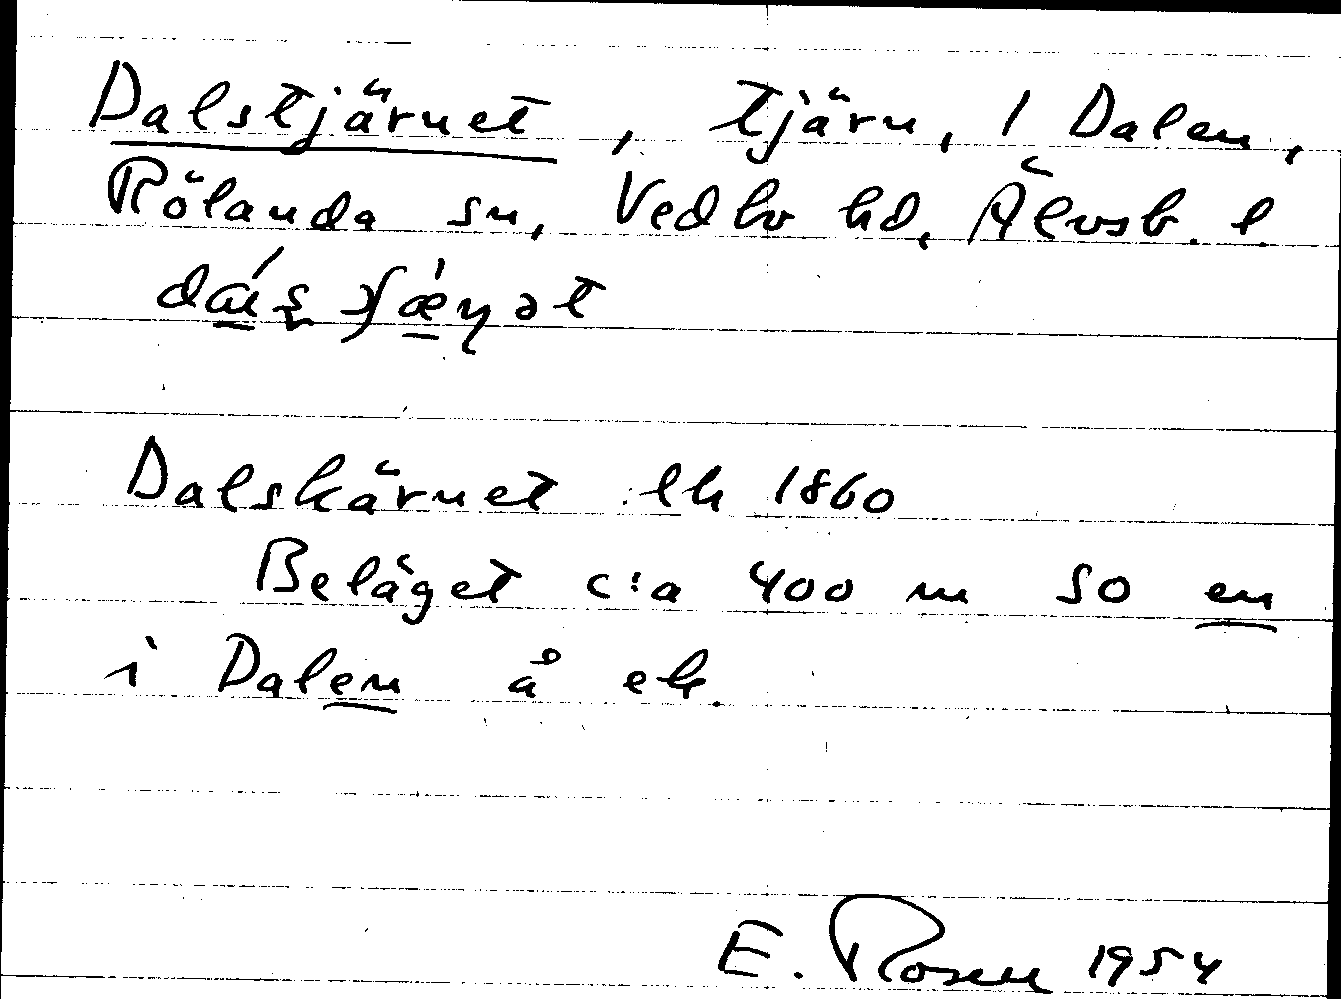 Dalstjärnet, tjärn, 1 Dalen,
Rölanda sn, Vedbo hd, Älvsb. l
Dalskärnet lk 1860
Beläget c:a 400 m SO en
i Dalen å ek.
E. Rosen 1954